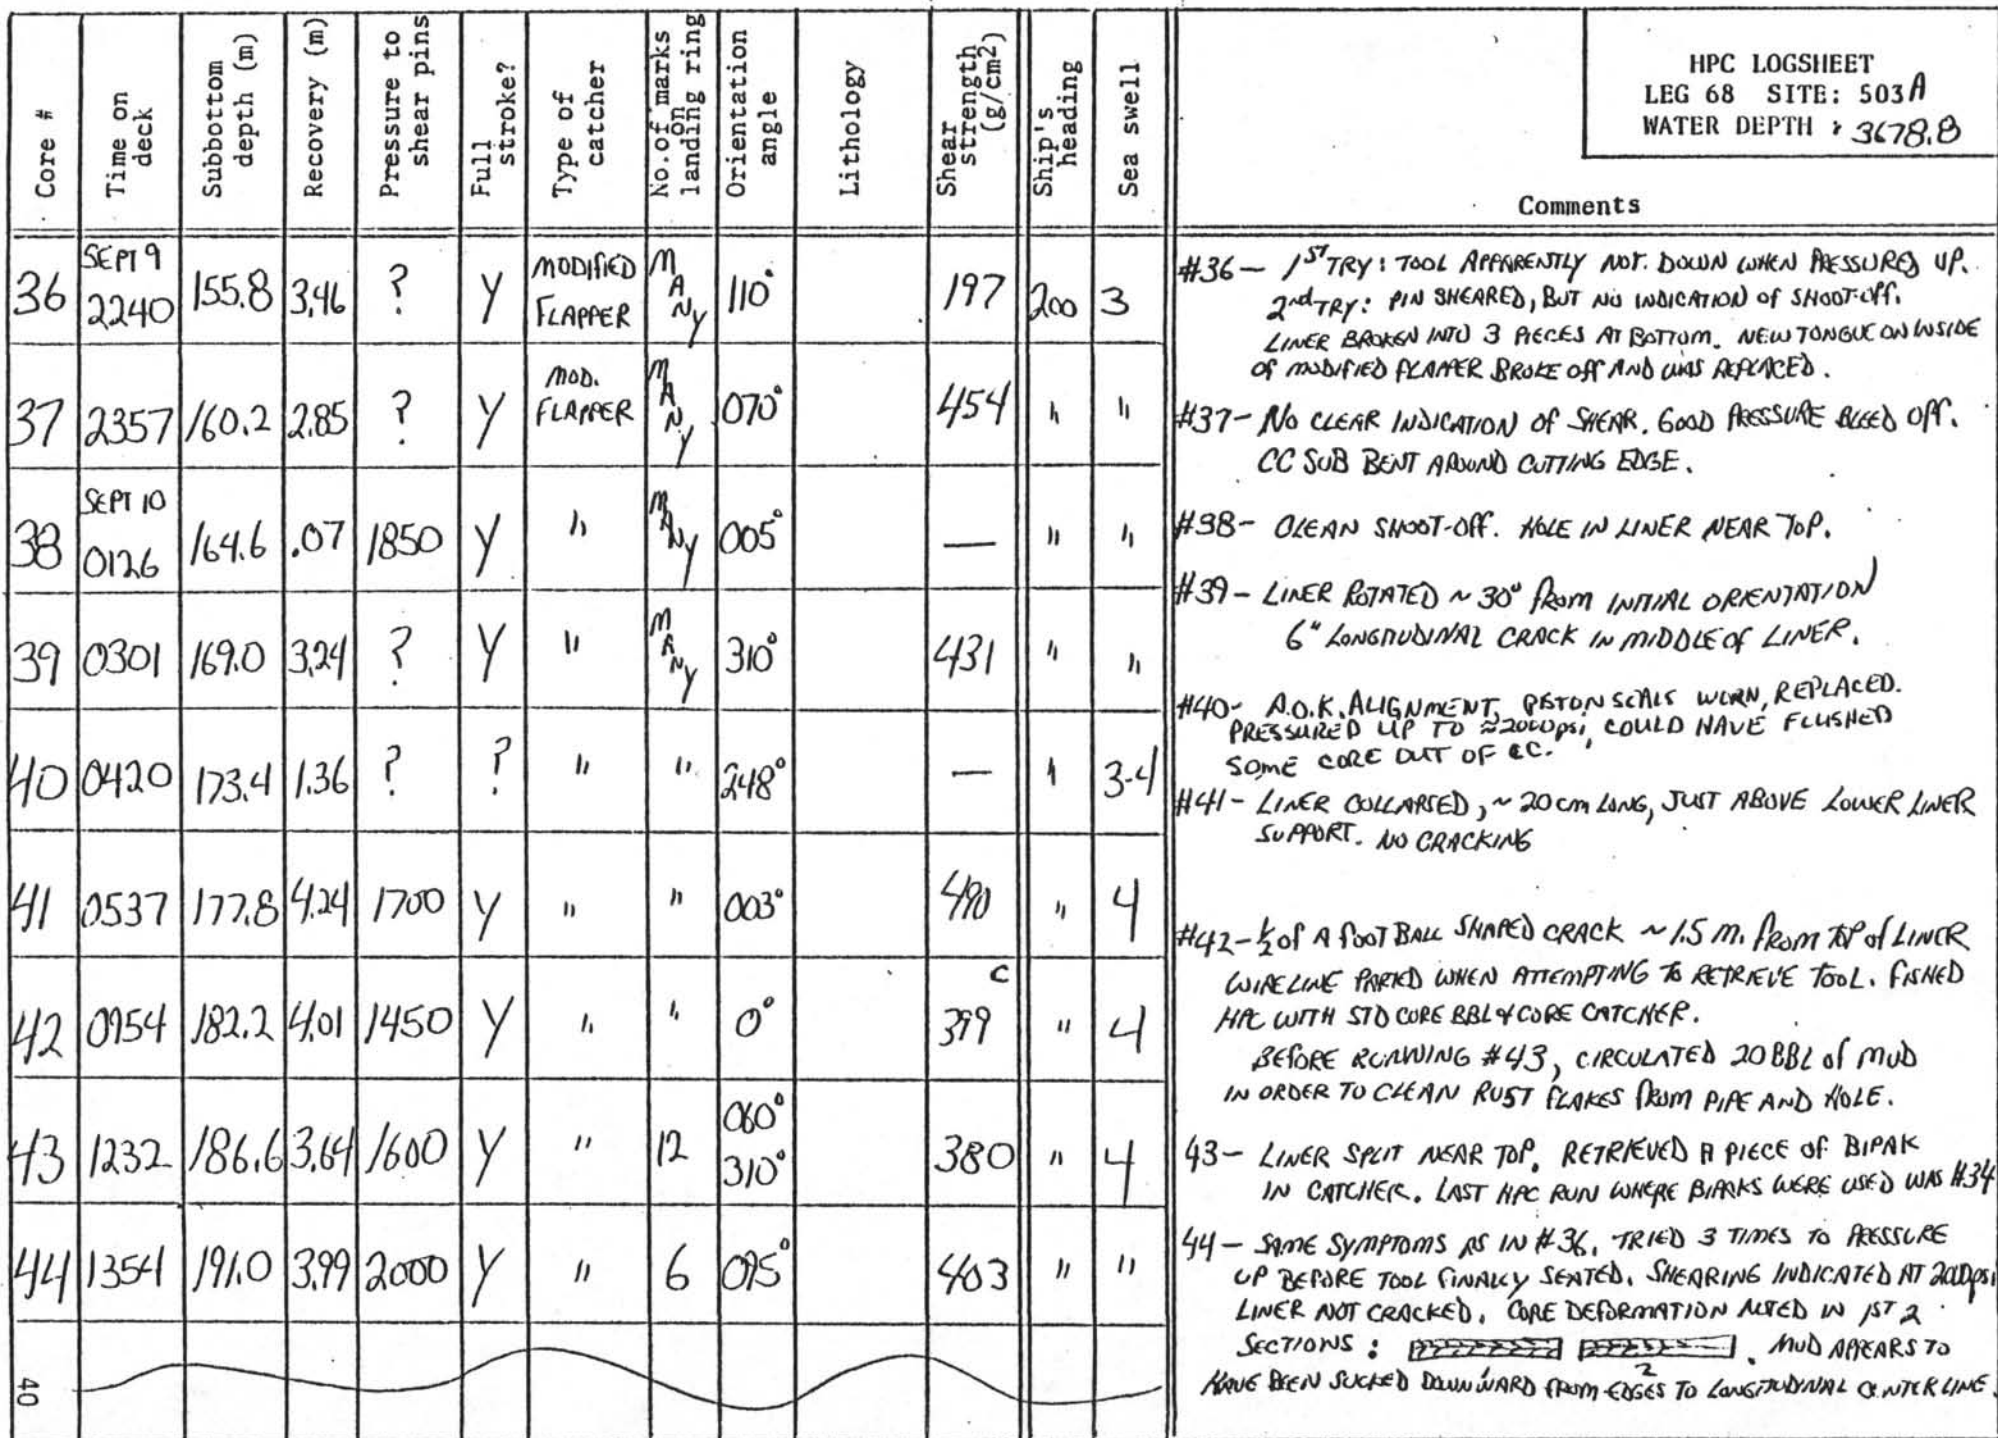 HPC LOGSHEET
LEG 68 SITE: 503A
WATER DEPTH : 3678.8
Core #
Time on deck
Subbottom depth (m)
Recovery (m)
Pressure to shear pins
Full stroke?
Type of catcher
No. of marks on landing ring
Orientation angle
Lithology
Shear strength (g/cm2)
Ship's heading
Sea swell
Comments
36 SEPT 9 2240 155.8 3.46 ? Y MODIFIED FLAPPER MANY 110° 197 200 3
37 2357 160.2 2.85 ? Y MOD. FLAPPER MANY 070° 454 " "
38 SEPT 10 0126 164.6 .07 1850 Y " MANY 005° — " "
39 0301 169.0 3.24 ? Y " MANY 310° 431 " "
40 0420 173.4 1.36 ? ? " " 248° — " 3-4
41 0537 177.8 4.24 1700 Y " " 003° 490 " 4
42 0954 182.2 4.01 1450 Y " " 0° C 399 " 4
43 1232 186.6 3.64 1600 Y " 12 060° 310° 380 " 4
44 1354 191.0 3.99 2000 Y " 6 095° 403 " "
40
#36 - 1ST TRY: TOOL APPARENTLY NOT DOWN WHEN PRESSURED UP.
2nd TRY: PIN SHEARED, BUT NO INDICATION OF SHOOT-OFF.
LINER BROKEN INTO 3 PIECES AT BOTTOM. NEW TONGUE ON INSIDE
OF MODIFIED FLAPPER BROKE OFF AND WAS REPLACED.
#37 - NO CLEAR INDICATION OF SHEAR. GOOD PRESSURE BLEED OFF.
CC SUB BENT AROUND CUTTING EDGE.
#38 - CLEAN SHOOT-OFF. HOLE IN LINER NEAR TOP.
#39 - LINER ROTATED ~ 30° FROM INITIAL ORIENTATION
6" LONGITUDINAL CRACK IN MIDDLE OF LINER.
#40 - A.O.K. ALIGNMENT, PISTON SEALS WORN, REPLACED.
PRESSURED UP TO ≈2000psi, COULD HAVE FLUSHED
SOME CORE OUT OF CC.
#41 - LINER COLLAPSED, ~ 20 cm LONG, JUST ABOVE LOWER LINER
SUPPORT. NO CRACKING
#42 - 1/2 OF A FOOT BALL SHAPED CRACK ~ 1.5 m. FROM TOP OF LINER
WIRELINE PARTED WHEN ATTEMPTING TO RETRIEVE TOOL. FISHED
HPC WITH STD CORE BBL & CORE CATCHER.
BEFORE RUNNING #43, CIRCULATED 20 BBL OF MUD
IN ORDER TO CLEAN RUST FLAKES FROM PIPE AND HOLE.
43 - LINER SPLIT NEAR TOP. RETRIEVED A PIECE OF BIPAK
IN CATCHER. LAST HPC RUN WHERE BIPAKS WERE USED WAS #34
44 - SAME SYMPTOMS AS IN #36. TRIED 3 TIMES TO PRESSURE
UP BEFORE TOOL FINALLY SEATED. SHEARING INDICATED AT 2000psi
LINER NOT CRACKED. CORE DEFORMATION NOTED IN 1ST 2
SECTIONS: . MUD APPEARS TO
2
HAVE BEEN SUCKED DOWNWARD FROM EDGES TO LONGITUDINAL CENTER LINE.